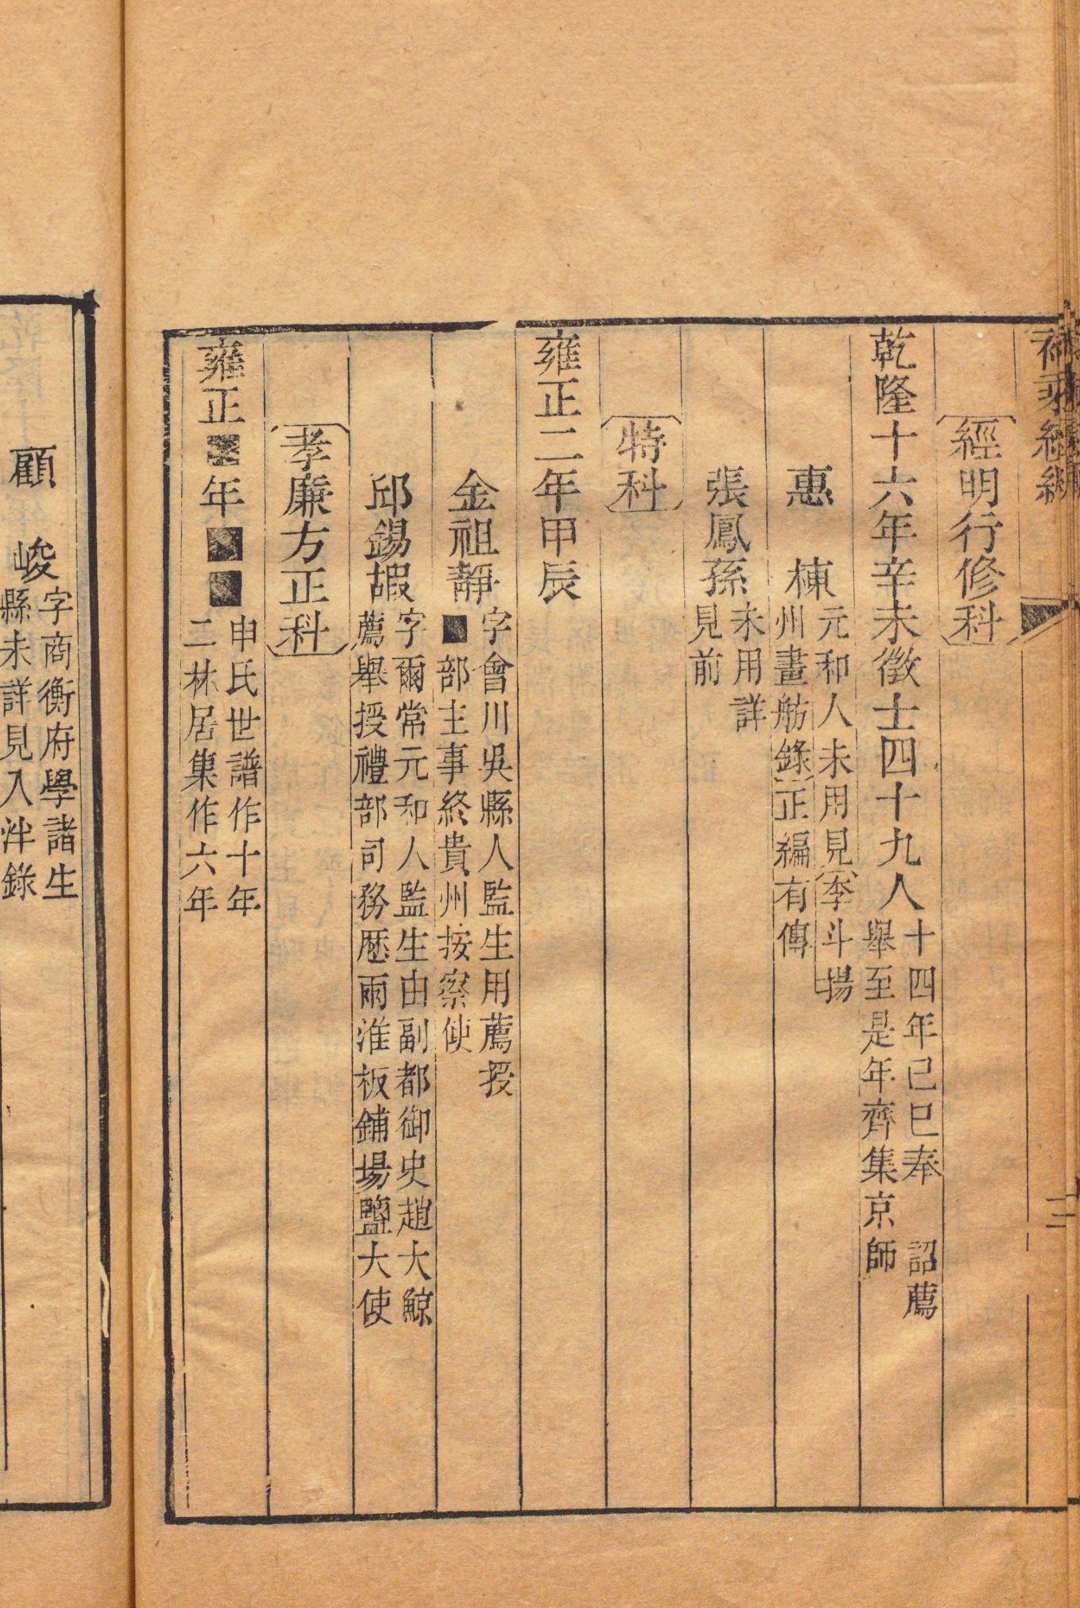 經明行修科
乾隆十六年辛未徵士四十九人
十四年己巳奉 詔薦
舉至是年齊集京師
惠 棟
元和人未用見李斗揚
州畫舫錄正編有傳
張鳳孫
未用詳
見前
特科
雍正二年甲辰
金祖靜
字會川吳縣人監生用薦授
■部主事終貴州按察使
邱錫嘏
字爾常元和人監生由副都御史趙大鯨
薦舉授禮部司務歷兩淮板鋪場鹽大使
孝廉方正科
雍正■年■■
申氏世譜作十年
二林居集作六年
顧 峻
字商衡府學諸生
縣未詳見入泮錄